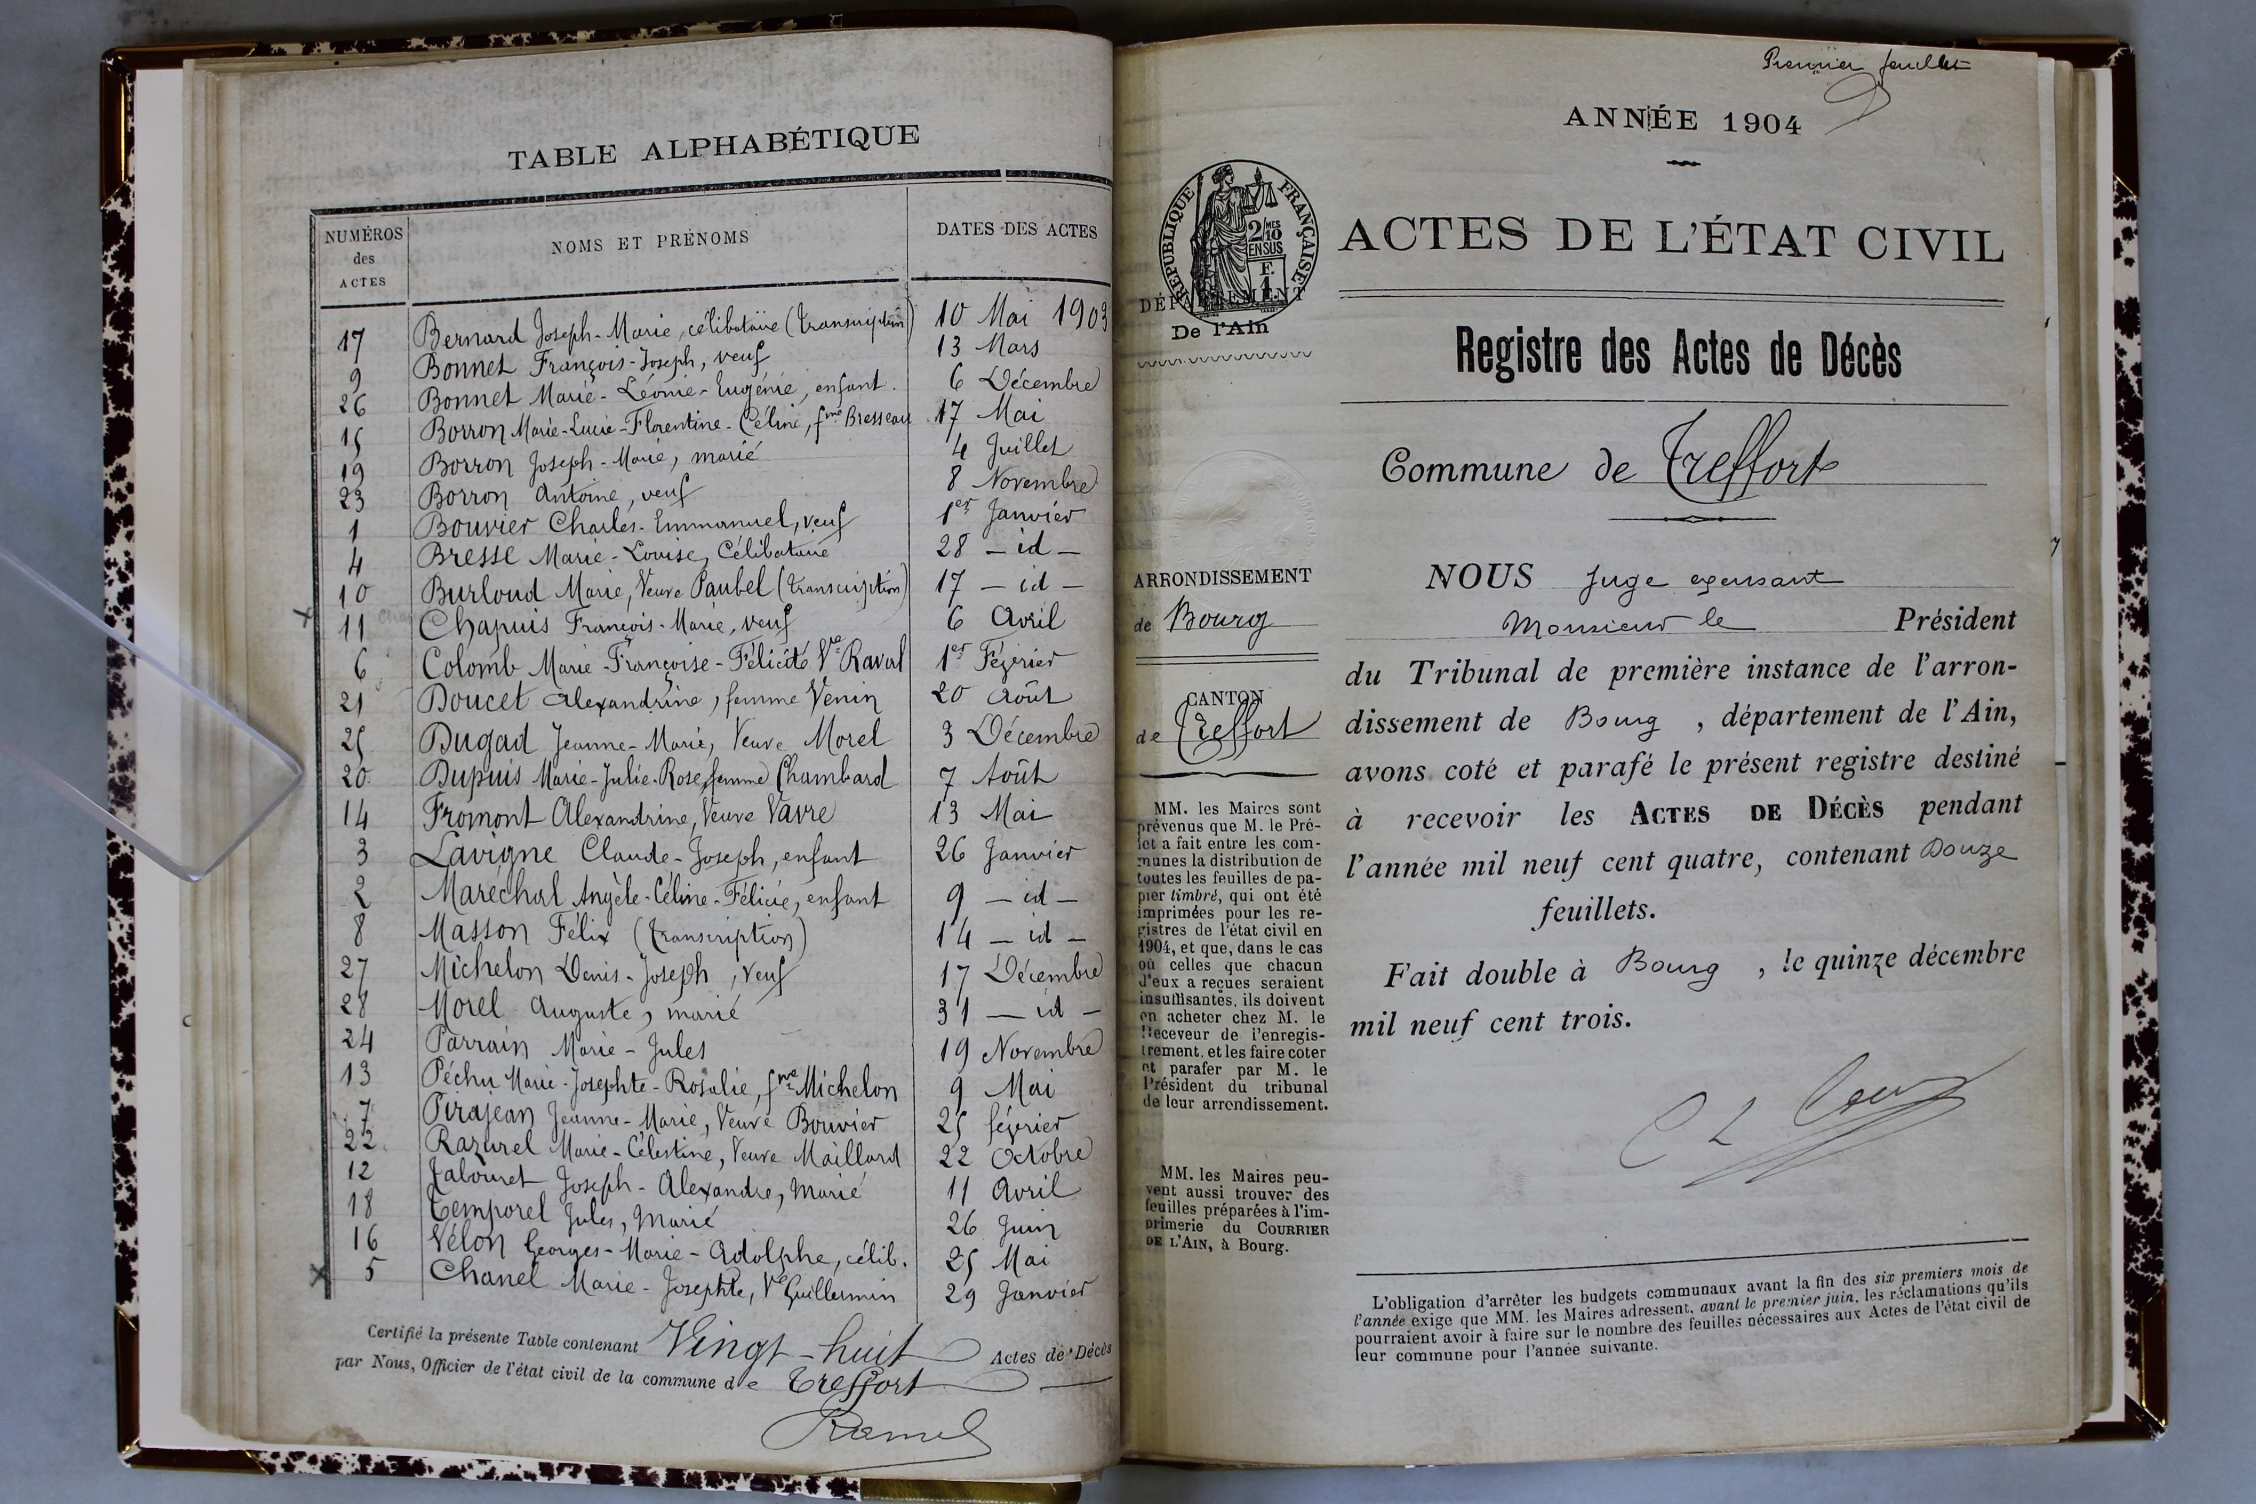 TABLE ALPHABÉTIQUE
NUMÉROS des ACTES NOMS ET PRÉNOMS DATES DES ACTES
17 Bernard Joseph-Marie, célibataire (transcription) 10 Mai 1903
9 Bonnet François-Joseph, veuf 13 Mars
26 Bonnet Marie-Léonie-Eugénie, enfant. 6 Décembre
15 Borron Marie-Lucie-Florentine-Céline, fme Bresseau 17 Mai
19 Borron Joseph-Marie, marié 4 Juillet
23 Borron Antoine, veuf 8 Novembre
1 Bouvier Charles-Emmanuel, veuf 1er Janvier
4 Bresse Marie-Louise, Célibataire 28 — id —
10 Burloud Marie, Veuve Paubel (transcription) 17 — id —
x 11 Chapuis François-Marie, veuf 6 Avril
6 Colomb Marie-Françoise-Félicité Vve Raval 1er Février
21 Doucet Alexandrine, femme Venin 20 Août
25 Dugad Jeanne-Marie, Veuve Morel 3 Décembre
20 Dupuis Marie-Julie-Rose, femme Chambard 7 Août
14 Fromont Alexandrine, Veuve Vavre 13 Mai
3 Lavigne Claude-Joseph, enfant 26 Janvier
2 Maréchal Angèle-Céline-Félicie, enfant 9 — id —
8 Masson Félix (transcription) 14 — id —
27 Michelon Denis-Joseph, veuf 17 Décembre
28 Morel Auguste, marié 31 — id —
24 Parrain Marie-Jules 19 Novembre
13 Péchu Marie-Josephte-Rosalie, fme Michelon 9 Mai
7 Pirajean Jeanne-Marie, Veuve Bouvier 25 février
22 Razurel Marie-Célestine, Veuve Maillard 22 Octobre
12 Talouret Joseph-Alexandre, Marié 11 Avril
18 Temporel Jules, Marié 26 Juin
16 Vélon Georges-Marie-Adolphe, célib. 25 Mai
x 5 Chanel Marie-Josephte, Ve Guillermin 29 Janvier
Certifié la présente Table contenant Vingt-huit Actes de Décès
par Nous, Officier de l'état civil de la commune de Treffort
Ramel
Premier feuillet
ANNÉE 1904
RÉPUBLIQUE FRANÇAISE
2/10 MES
EN SUS
F.
1
ACTES DE L'ÉTAT CIVIL
DÉPARTEMENT
De l'Ain
Registre des Actes de Décès
Commune de Treffort
ARRONDISSEMENT
de Bourg
CANTON
de Treffort
MM. les Maires sont
prévenus que M. le Pré-
fet a fait entre les com-
munes la distribution de
toutes les feuilles de pa-
pier timbré, qui ont été
imprimées pour les re-
gistres de l'état civil en
1904, et que, dans le cas
où celles que chacun
d'eux a reçues seraient
insuffisantes, ils doivent
en acheter chez M. le
Receveur de l'enregis-
trement, et les faire coter
et parafer par M. le
Président du tribunal
de leur arrondissement.
MM. les Maires peu-
vent aussi trouver des
feuilles préparées à l'im-
primerie du COURRIER
DE L'AIN, à Bourg.
NOUS Juge exerçant
Monsieur le Président
du Tribunal de première instance de l'arron-
dissement de Bourg , département de l'Ain,
avons coté et parafé le présent registre destiné
à recevoir les ACTES DE DÉCÈS pendant
l'année mil neuf cent quatre, contenant Douze
feuillets.
Fait double à Bourg , le quinze décembre
mil neuf cent trois.
L'obligation d'arrêter les budgets communaux avant la fin des six premiers mois de
l'année exige que MM. les Maires adressent, avant le premier juin, les réclamations qu'ils
pourraient avoir à faire sur le nombre des feuilles nécessaires aux Actes de l'état civil de
leur commune pour l'année suivante.